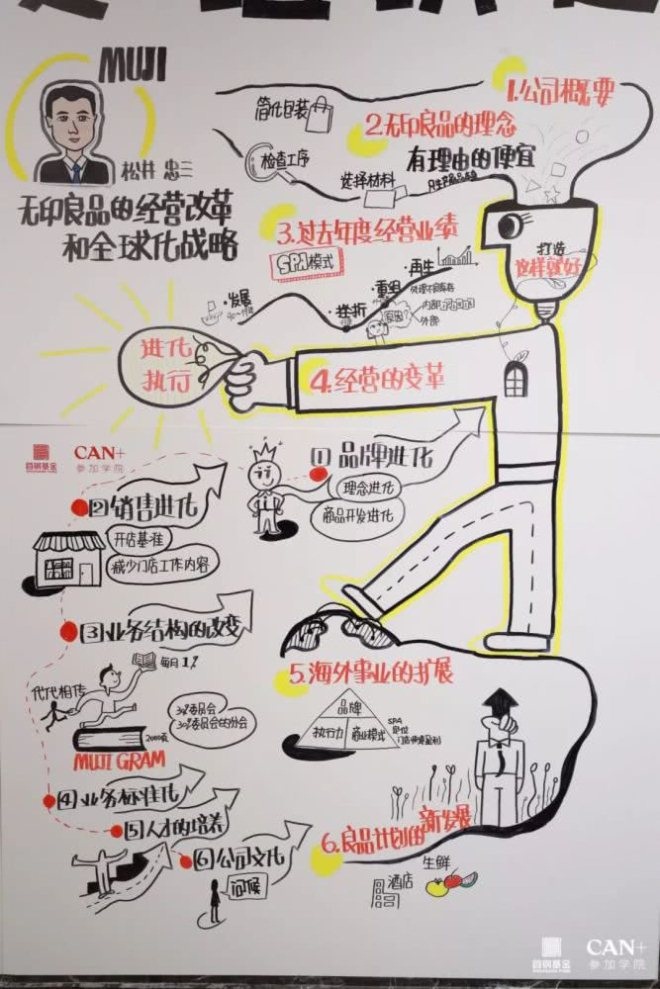 MUJI
松井 忠三
无印良品的经营改革
和全球化战略
1.公司概要
2.无印良品的理念
有理由的便宜
简化包装
检查工序
选择材料
打造
这样就好
3.过去年度经营业绩
SPA模式
·发展
·挫折
·重组
·再生
原因?
内部
外需
进化
执行
4.经营的变革
首钢基金
CAN+
参加学院
[1]品牌进化
理念进化
商品开发进化
[2]销售进化
开店基准
减少门店工作内容
[3]业务结构的改变
每月1%
代代相传
30%委员会
30%委员会的分会
2000页
MUJI GRAM
[4]业务标准化
[5]人才的培养
[6]公司文化
问候
5.海外事业的扩展
品牌
执行力
商业模式
SPA
定位
6.良品计划的新发展
生鲜
酒店
首钢基金
CAN+
参加学院